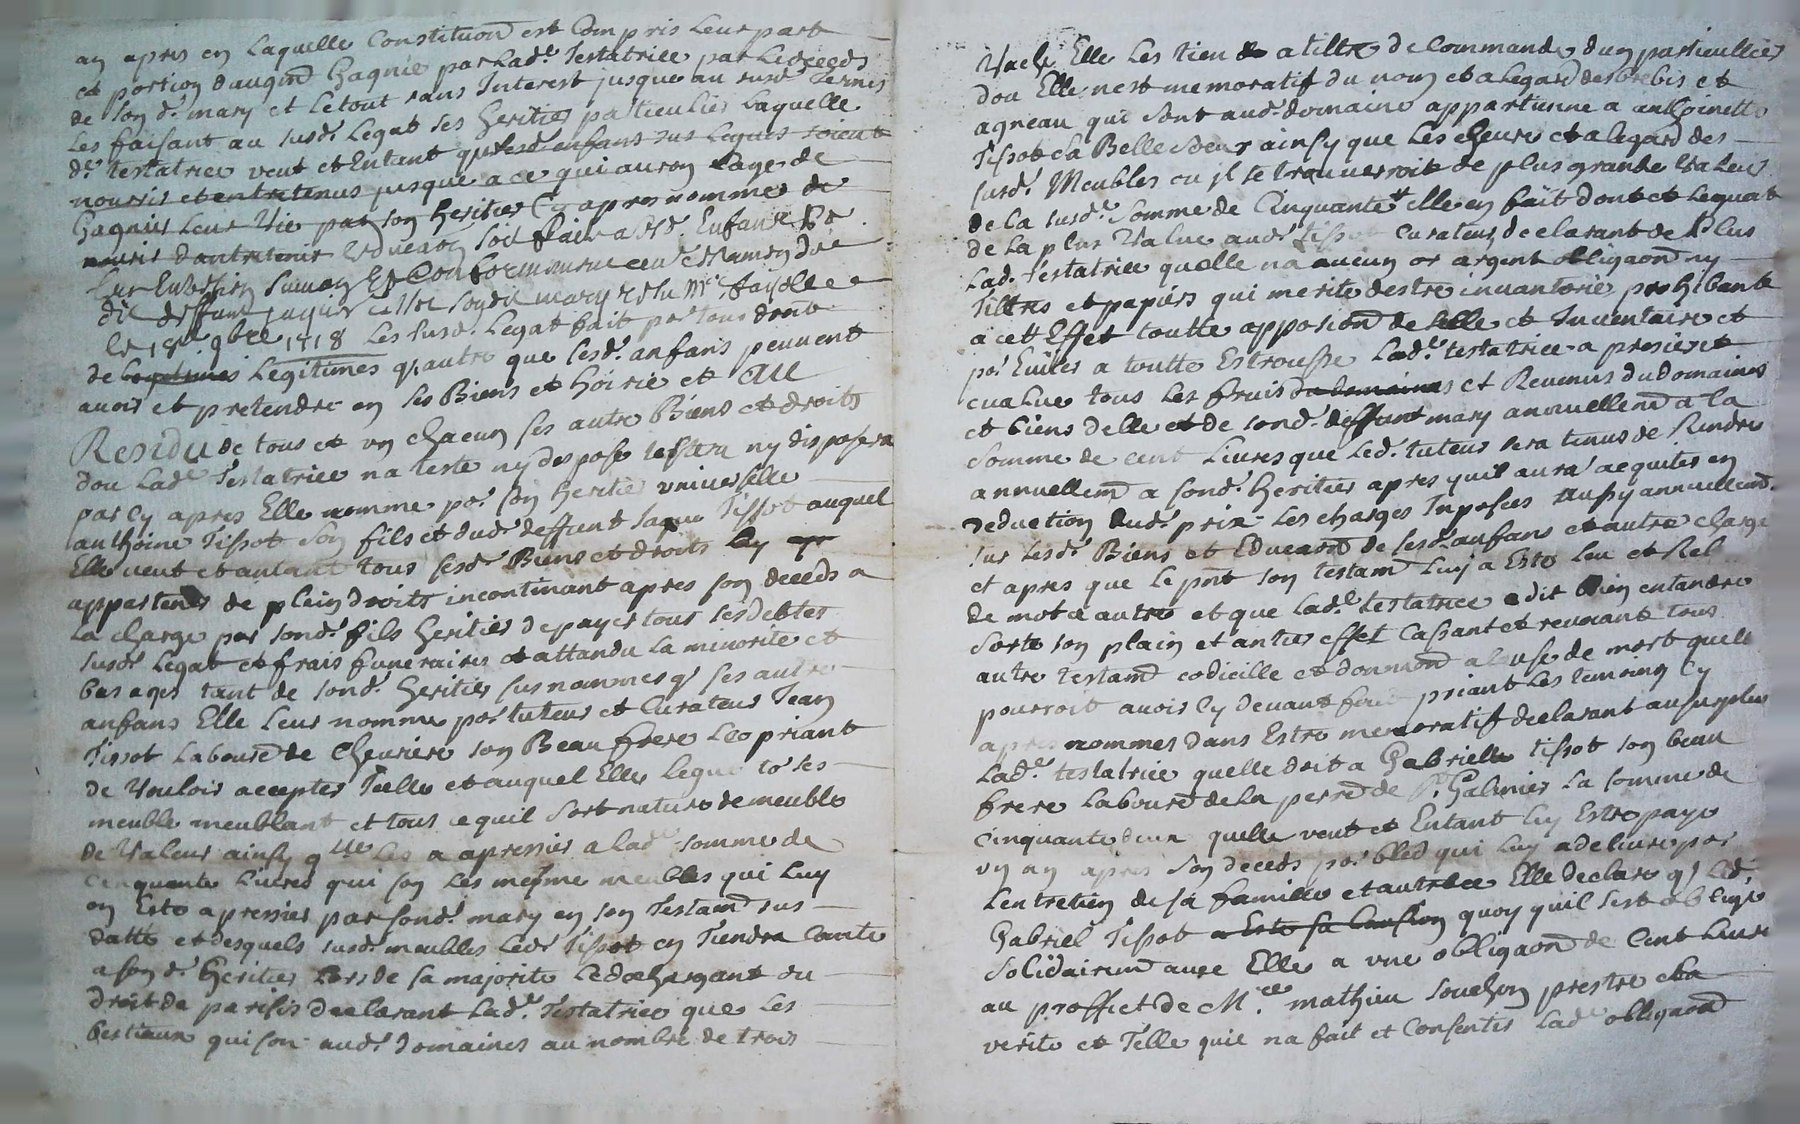 an apres en Laquelle Constituon̄ est Compris Leur part
et portion daugmd Gagnie par Lad.e Testatrice par Le deceds
de son d.t mary et Le tout sans Interest jusque au susd. Terme
Les faisant au susd.t Legat ses heritiers particuliers Laquelle
d.e testatrice veut et Entant que lesd enfans sus Legués soient
nourris et entretenus jusque a ce qui auron Lage de
Gagnier Leur Vie par son heritier Cy apres nomme de
nourir dantretenir Educaon̄ soit faire a sd. Enfans
Les susd. Legat fait pour tous droit
de Legitimes Legitimes q autre que lesd.t anfans peuvent
avoir et pretendre en ses Biens et hoirie et au
Residu de tous et un chacun ses autre Biens et droits
dou Lad.e Testatrice na teste ny dispose ny disposera
par Cy apres Elle nomme po.r son heritier universelle
anthoine Tissot son fils et dud.t deffunt Jaque Tissot auquel
Elle veut et antant tous sesd.t Biens et droits luy
appartenir de plein droits incontinant apres son deceds a
La charge par sond.t fils heritier de payer tous ses debtes
susd.t Legat et frais funeraires et attandu La minorité et
bas ages tant de sond.t heritier sus nommes q.e ses autre
anfans Elle Leur nomme po.r tuteur et Curateur Jean
Tissot Laboure.r de Chevriere son Beau frere Leo priant
de Vouloir accepter Telle et auquel Elle Legue to.s ses
meuble meublant et tous ce quil sort nature de meuble
de Valeur ainsy q.lle Les a apressier a Lad.e somme de
Cinquante Livres qui son Les mesme meubles qui Luy
on Esté apressier par sond.t mary en son Testamd sus
datté et desquels susd.t meubles Led.t Tissot en Tiendra Conte
a son d.t heritier Lors de sa majorité Le dechargant du
droit de parisis declarant Lad.e Testatrice que Les
bestiaux qui son aud.t domaines au nombre de trois
Vache Elle Les tien a tiltre de Commande dun particullier
dou Elle nest memoratif du nom et a Legard des brebis et
agneau qui sont aud.t domaine appartienne a anthoinette
Tissot sa Belle soeur ainsy que Les chevres et a legard des
susd.t Meubles ou jl se trouverroit de plus grande Valeur
de la susd.e somme de Cinquante Elle en fait dont et Lequat
de La plus Value aud.t Tissot Curateur declarant de plus
Lad. Testatrice quelle na aucun or argent obligaon̄ ny
Tiltres et papiers qui merite destre invantorié prohibant
a cett Effet toutte apposion̄ de sselle et Inventaire et
po.r Euiter a toutte Estrousse Lad.e testatrice a presier et
evaluer tous Les fruis du domaines et Revenus du domaines
et biens delle et de sond.t deffunt mary annuellemd a la
somme de cent Livres que Led.t tuteur sera tenus de Rendre
annuellemd a sond.t heritier apres quil aura acquiter en
deduction dud.t prix Les charges Imposees aussy annuellemd.
sur lesd.t Biens et Educaon̄ de sesd.t anfans et autre charge
et apres que Le pnt son testamd Luy a Esté Leu et Rel
de mot a autre et que Lad.e testatrice a dit bien entandre
Sorte son plain et antier effet Cassant et revocant tous
autre testamd codicille et donnaon̄ a Cause de mort quelle
pourroit avoir Cy devant fait priant Les temoins Cy
apres nommes dans Estre memoratif declarant au surplus
Lad.e testatrice quelle doit a Gabrielle Tissot son beau
frere Laboure.r de La de S.t Galmier La somme de
Cinquante quelle veut et Entant luy Estre paye
un an apres son deceds po.r bled qui Luy a delivre por
Lentretien de sa famille et autre Elle declare q.e Led.
Gabriel Tissot a Esté sa Caution quoy quil sest obligé
Solidairemd avec Elle a une obligaon̄ de Cent Livre
au proffict de M.re mathieu souchon prestre a La
verité et Telle quil na fait et Consenter Lad.e obligaon̄